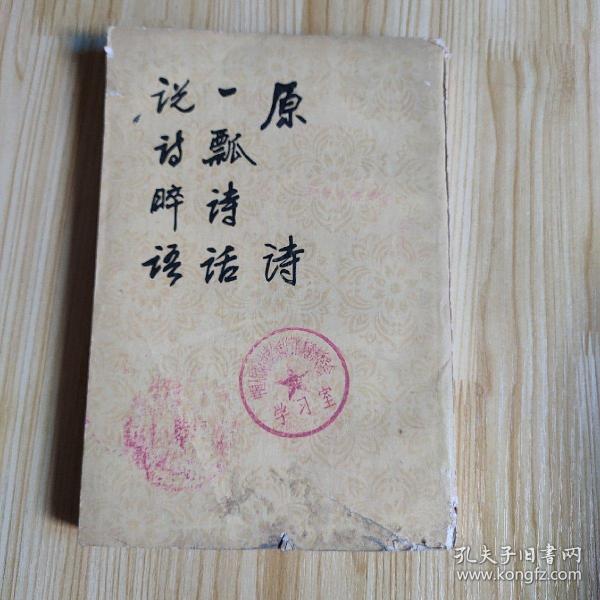 原诗
一瓢诗话
说诗晬语
学习室
孔夫子旧书网
www.kongfz.com